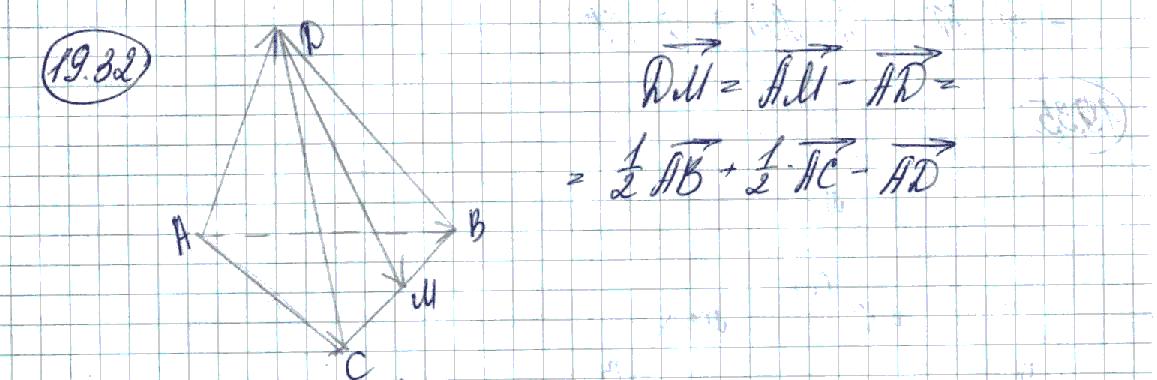 19.32
D
A
B
M
C
DM = AM - AD =
= 1/2 AB + 1/2 · AC - AD